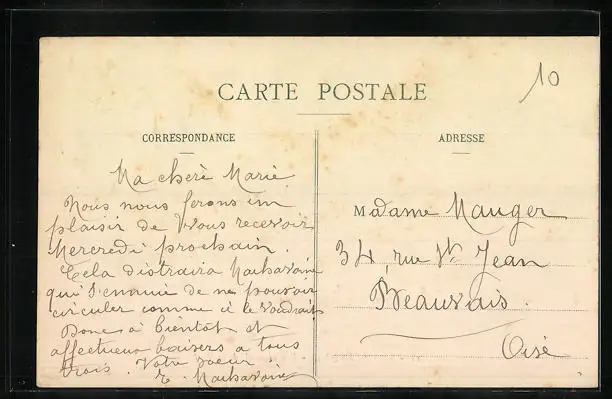 10
CARTE POSTALE
CORRESPONDANCE
Ma cherè Marie
Nous nous ferons un
plaisir de Vous recevoir
Mercredi prochain.
Cela distraira
qui s'ennuie de ne pouvoir
circuler comme il le voudrait
Donc à bientot et
affectueux baisers a tous
trois. Votre soeur
E.
ADRESSE
Madame Mauger
34, rue St Jean
Beauvais.
Oise